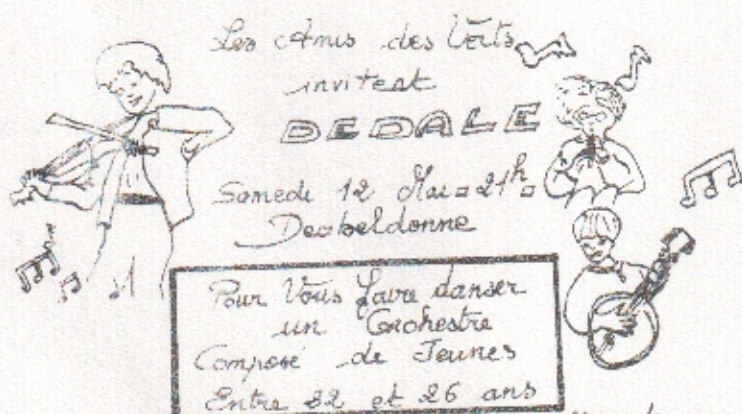 Les Amis des Verts
invitent
DEDALE
Samedi 12 Mai 21h
Desbeldonne
Pour Vous faire danser
un Orchestre
Composé de Jeunes
Entre 22 et 26 ans